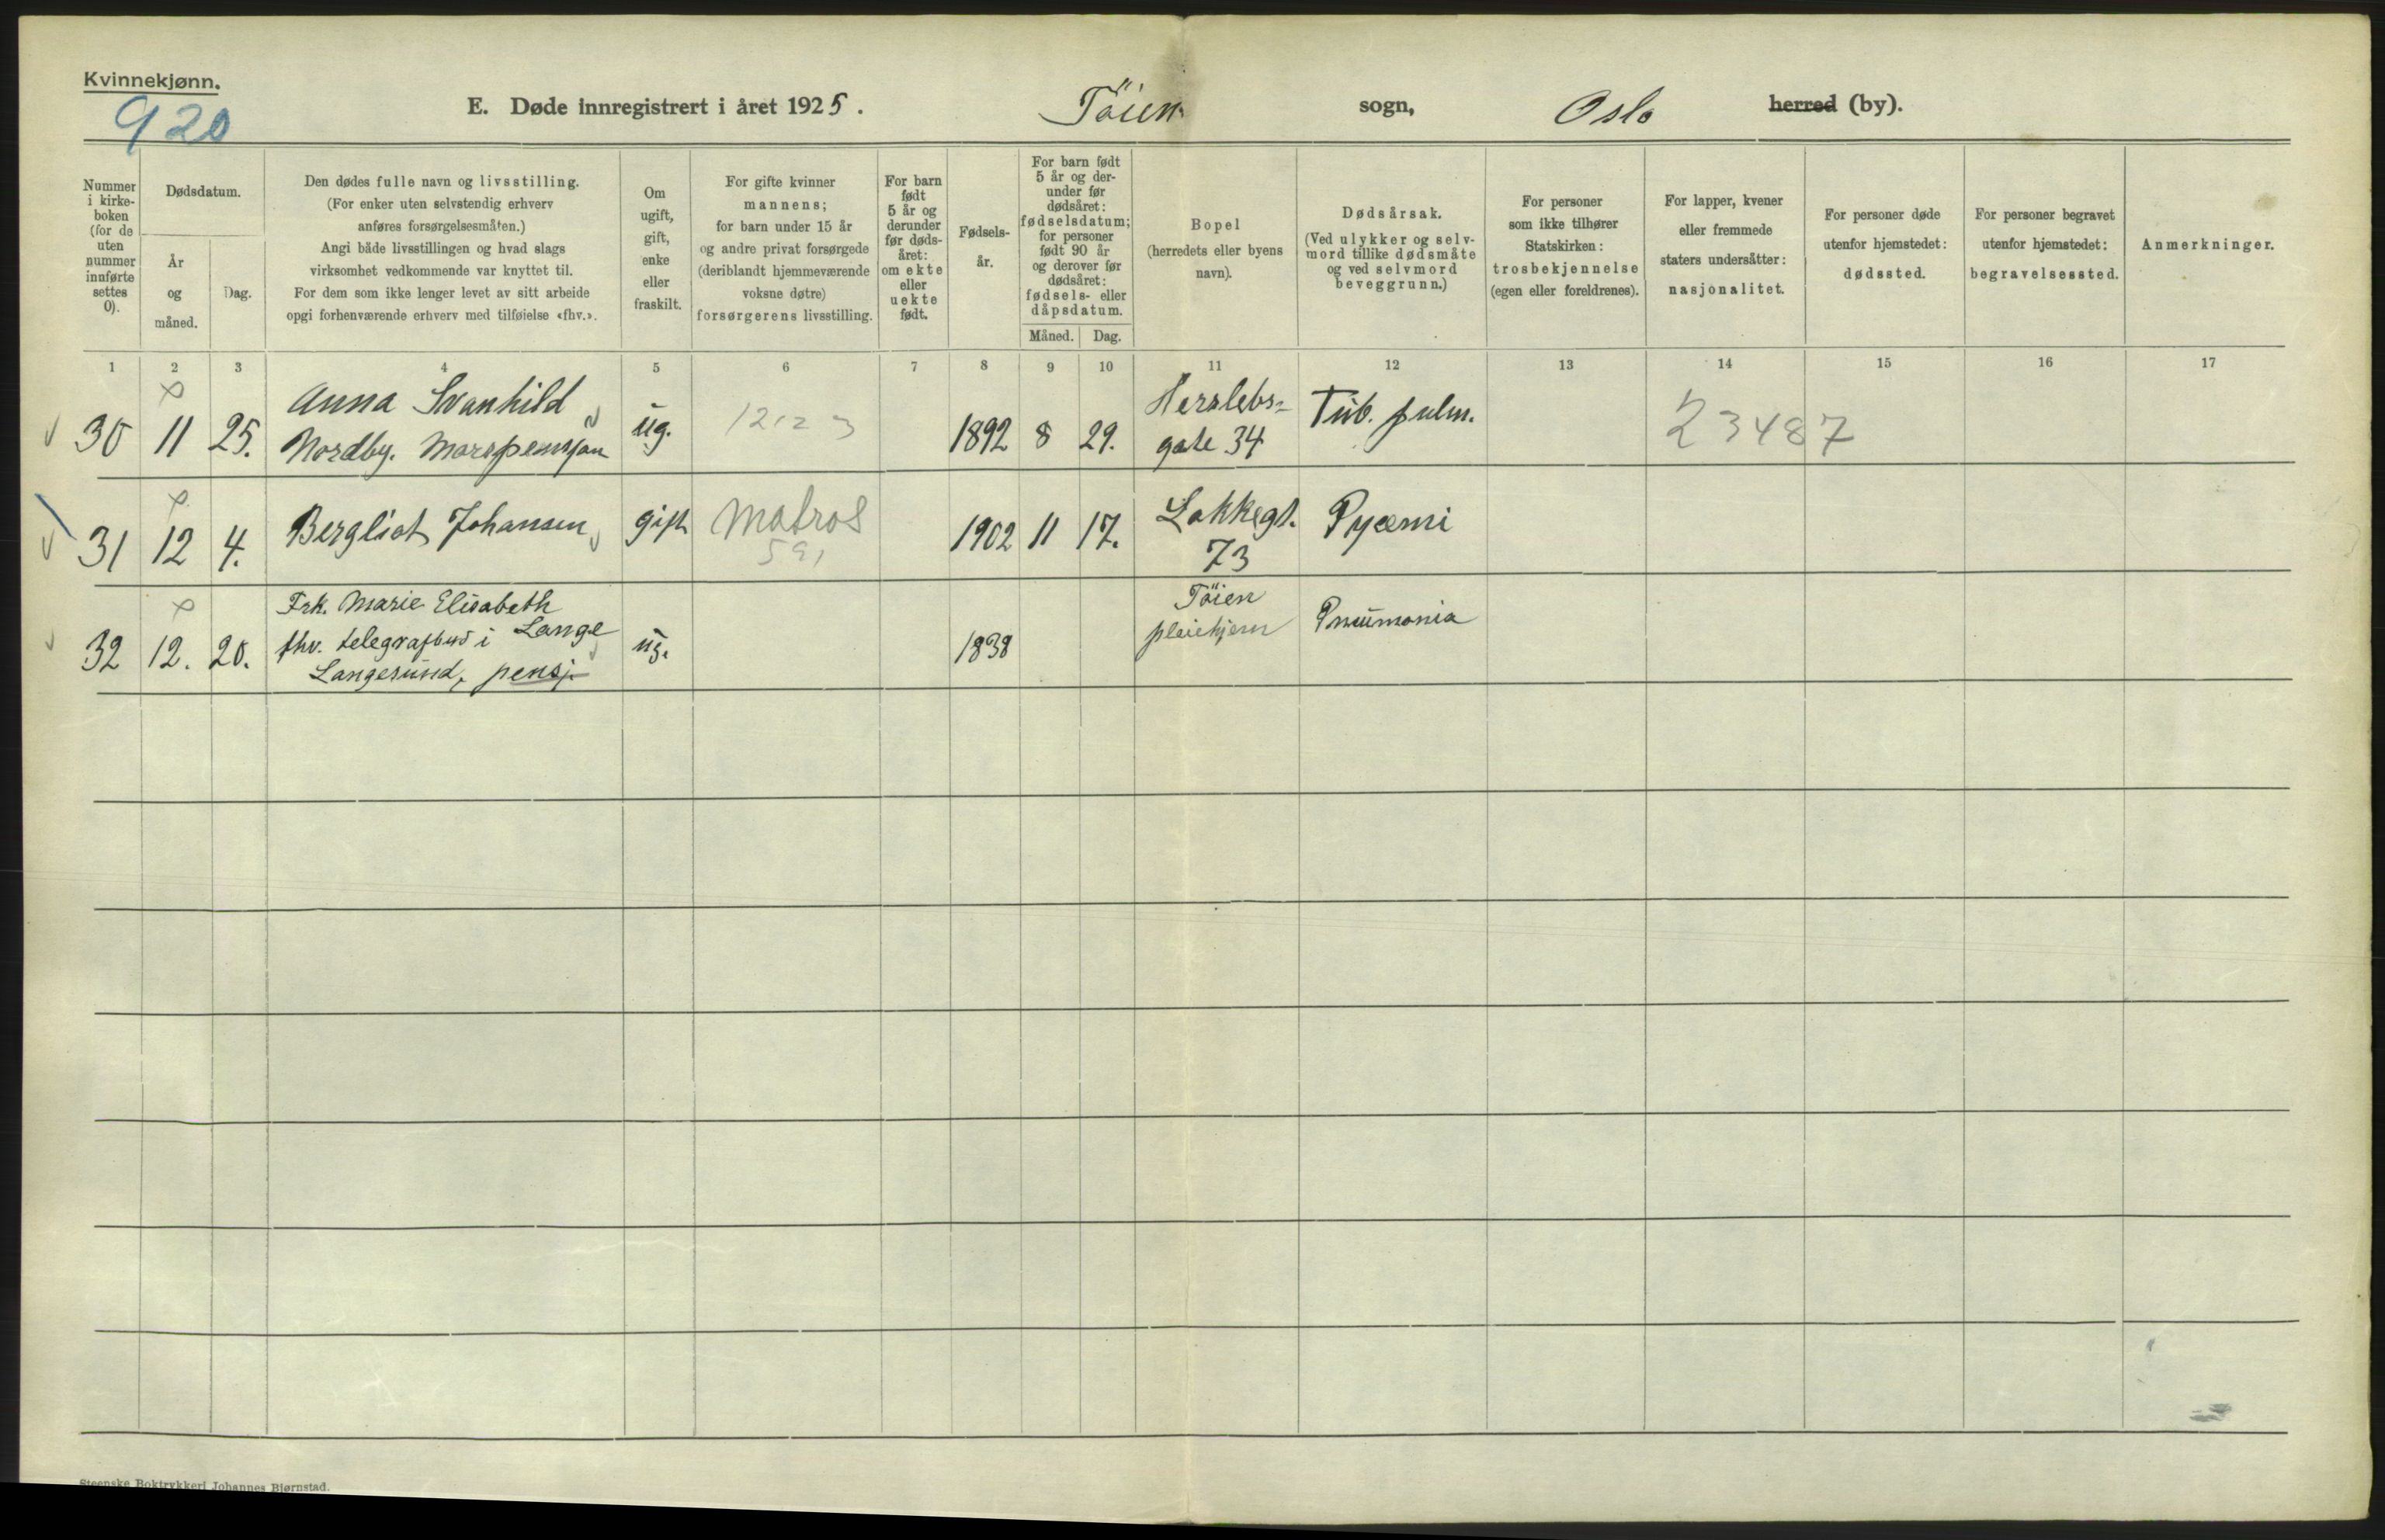 Kvinnekjønn.
920
E. Døde innregistrert i året 1925. Töien sogn, Oslo herred (by).
Nummer i kirke-boken (for de uten nummer innførte settes 0).
Dødsdatum.
År og måned.
Dag.
Den dødes fulle navn og livsstilling.
(For enker uten selvstendig erhverv
anføres forsørgelsesmåten.)
Angi både livsstillingen og hvad slags
virksomhet vedkommende var knyttet til.
For dem som ikke lenger levet av sitt arbeide
opgi forhenværende erhverv med tilføielse «fhv.».
Om ugift, gift, enke eller fraskilt.
For gifte kvinner
mannens;
for barn under 15 år
og andre privat forsørgede
(deriblandt hjemmeværende
voksne døtre)
forsørgerens livsstilling.
For barn født 5 år og derunder før døds-året: om ekte eller uekte født.
Fødsels-år.
For barn født
5 år og der-
under før
dødsåret:
fødselsdatum;
for personer
født 90 år
og derover før
dødsåret:
fødsels- eller
dåpsdatum.
Måned. Dag.
Bopel
(herredets eller byens
navn).
Dødsårsak.
(Ved ulykker og selv-
mord tillike dødsmåte
og ved selvmord
beveggrunn.)
For personer
som ikke tilhører
Statskirken:
trosbekjennelse
(egen eller foreldrenes).
For lapper, kvener
eller fremmede
staters undersåtter:
nasjonalitet.
For personer døde
utenfor hjemstedet:
dødssted.
For personer begravet
utenfor hjemstedet:
begravelsessted.
Anmerkninger.
1 2 3 4 5 6 7 8 9 10 11 12 13 14 15 16 17
30 11 25. Anna Svanhild
Nordby. ug. 1892 8 29. Herslebs-
gate 34 Tub. pulm. 23487
31 12 4. Bergliot Johansen gift Matros
591 1902 11 17. Lakkegt.
73 Pyæmi
32 12. 20. Frk. Marie Elisabeth
Lange
fhv. telegrafbud i
Langesund, pensj. ug. 1838 Töien
pleiehjem Pneumonia
Steenske Boktrykkeri Johannes Bjørnstad.